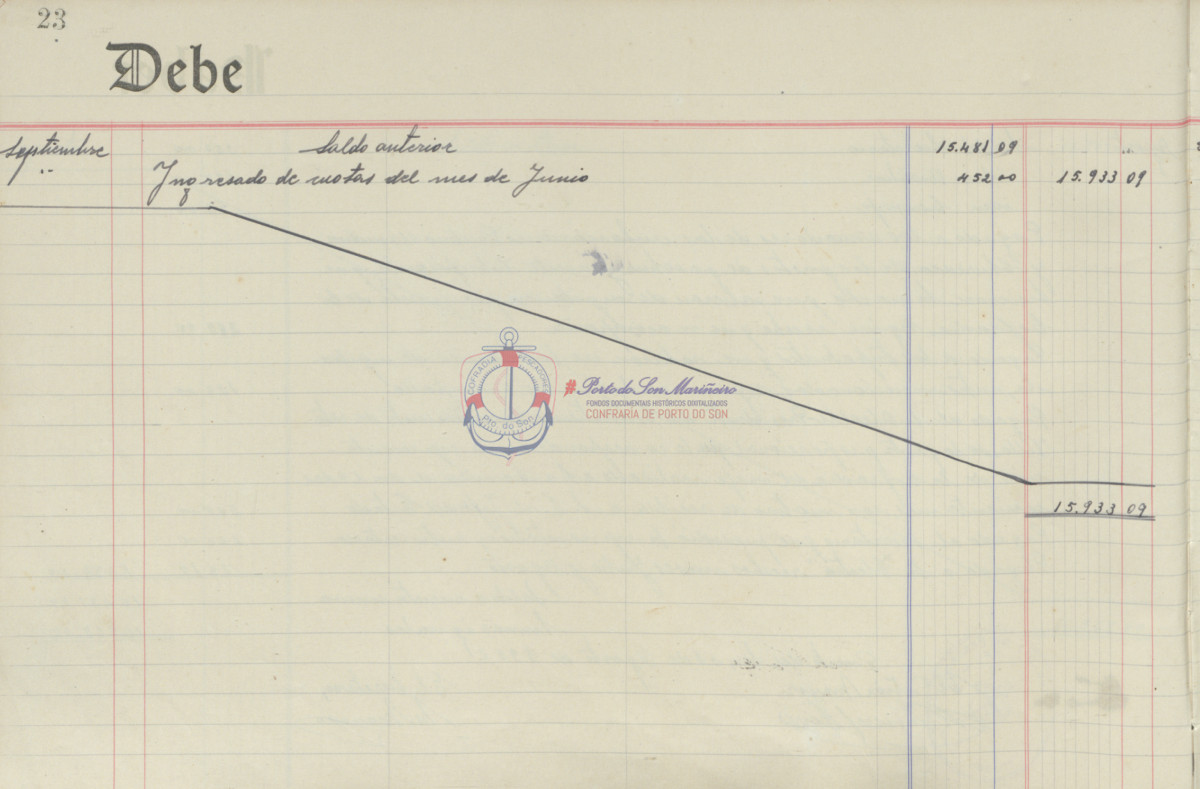 23
Debe
Septiembre Saldo anterior 15.481 09
" Ingresado de cuotas del mes de Junio 452 00 15.933 09
COFRADIA PESCADORES
Pto. do Son
#Porto do Son Mariñeiro
FONDOS DOCUMENTAIS HISTÓRICOS DIXITALIZADOS
CONFRARÍA DE PORTO DO SON
15.933 09